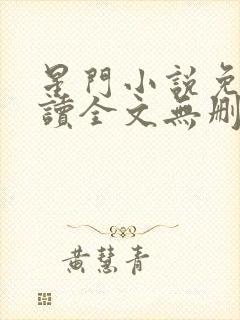 星門小說免
讀全文無刪
黃慧青